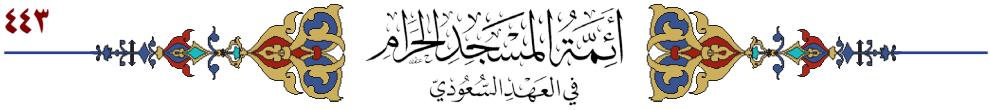 ٤٤٣
أَئِمَّةُ المَسْجِدِ الحَرَامِ
فِي العَهْدِ السُّعُودِيِّ